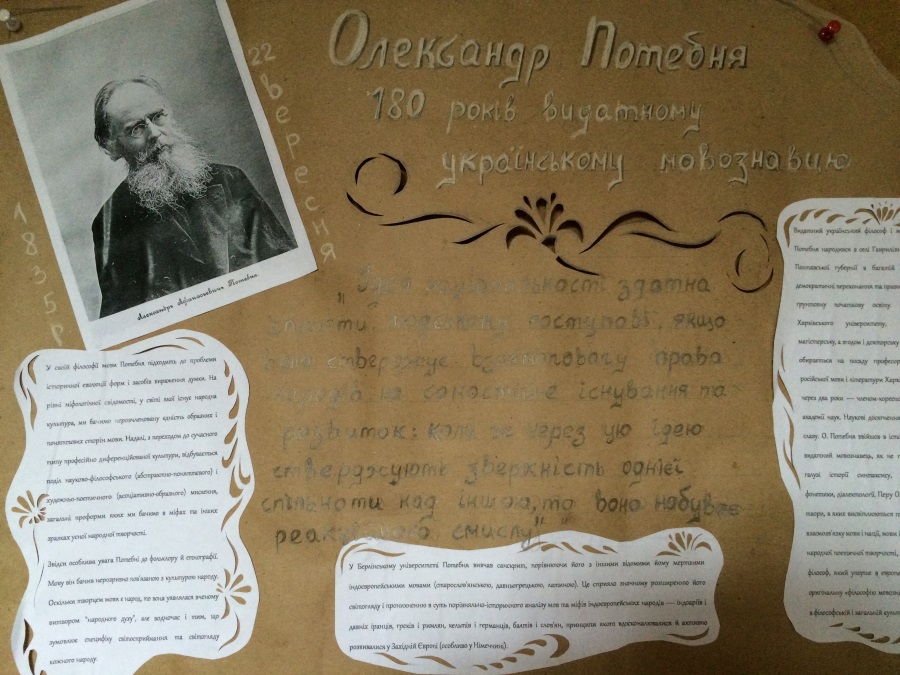 Олександр Потебня
180 років видатному
українському мовознавцю
22 вересня
1835р
Александръ Афанасьевичъ Потебня.
"Ідея національності здатна
людському поступові, якщо
стверджує взаємоповагу права
народів на самостійне існування та
розвиток: коли ж через цю ідею
стверджують зверхність однієї
спільноти над іншою, то воно набуває
реакційного смислу"
У своїй філософії мови Потебня підходить до проблеми
історичної еволюції форм і засобів вираження думки. На
рівні міфологічної свідомості, у світі якої існує народна
культура, ми бачимо нерозчленовану єдність образних і
понятійних сторін мови. Надалі, з переходом до сучасного
типу професійно диференційованої культури, відбувається
поділ науково-філософського (абстрактно-понятійного) і
художньо-поетичного (асоціативно-образного) мислення,
загальні праформи яких ми бачимо в міфах та інших
зразках усної народної творчості.
Звідси особлива увага Потебні до фольклору й етнографії.
Мову він бачив нерозривно пов'язаною з культурою народу.
Оскільки творцем мови є народ, то вона уявлялася вченому
витвором "народного духу", але водночас і тим, що
зумовлює специфіку світосприймання та світогляду
кожного народу.
У Берлінському університеті Потебня вивчав санскрит, порівнюючи його з іншими відомими йому мертвими
індоєвропейськими мовами (старослов'янською, давньогрецькою, латиною). Це сприяло значному розширенню його
світогляду і проникненню в суть порівняльно-історичного аналізу мов та міфів індоєвропейських народів — індоаріїв і
давніх іранців, греків і римлян, кельтів і германців, балтів і слов'ян, принципи якого вдосконалювалися й активно
розвивалися у Західній Європі (особливо у Німеччині).
Видатний український філософ і
Потебня народився в селі Гаврилівка
Полтавської губернії в багатій
демократичні переконання та
ґрунтовну початкову освіту.
Харківського університету,
магістерську, а згодом і докторську
обирається на посаду професора
російської мови і літератури
через два роки — членом-
академії наук. Наукові досягнення
славу. О. Потебня ввійшов в
видатний мовознавець, як
галузі історії синтаксису,
фонетики, діалектології. Перу О.
твори, в яких висвітлюються
взаємозв'язку мови і нації, мови і
народної поетичної творчості,
філософ, який уперше в
оригінальну «філософію
в філософській і загальній